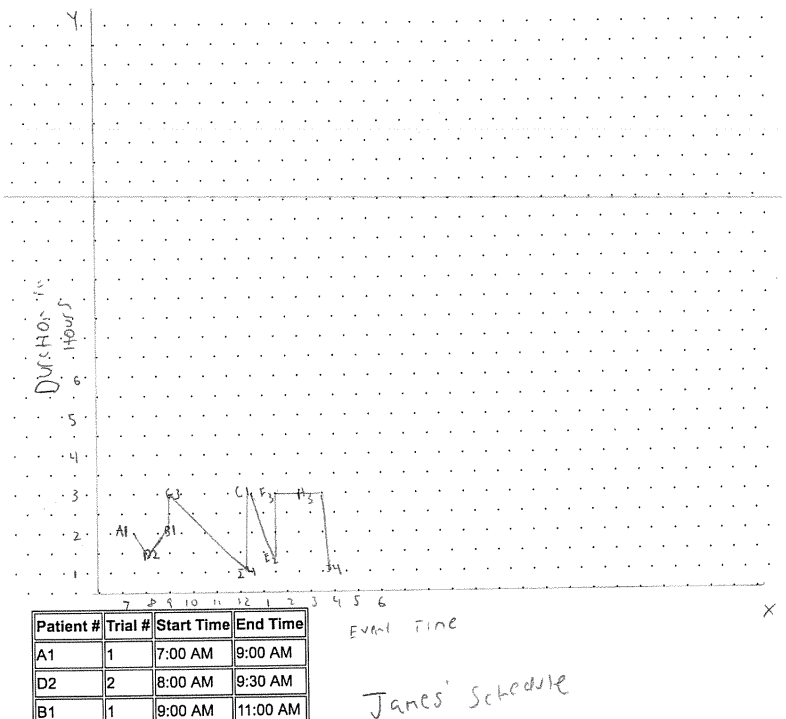 Y
Duration in
Hours
6
5
4
3 G3 C1 F3 H3
A1 B1
2
D2 E2
1 I4 J4
7 8 9 10 11 12 1 2 3 4 5 6
X
Event Time
Patient # Trial # Start Time End Time
A1 1 7:00 AM 9:00 AM
D2 2 8:00 AM 9:30 AM
B1 1 9:00 AM 11:00 AM
James' Schedule